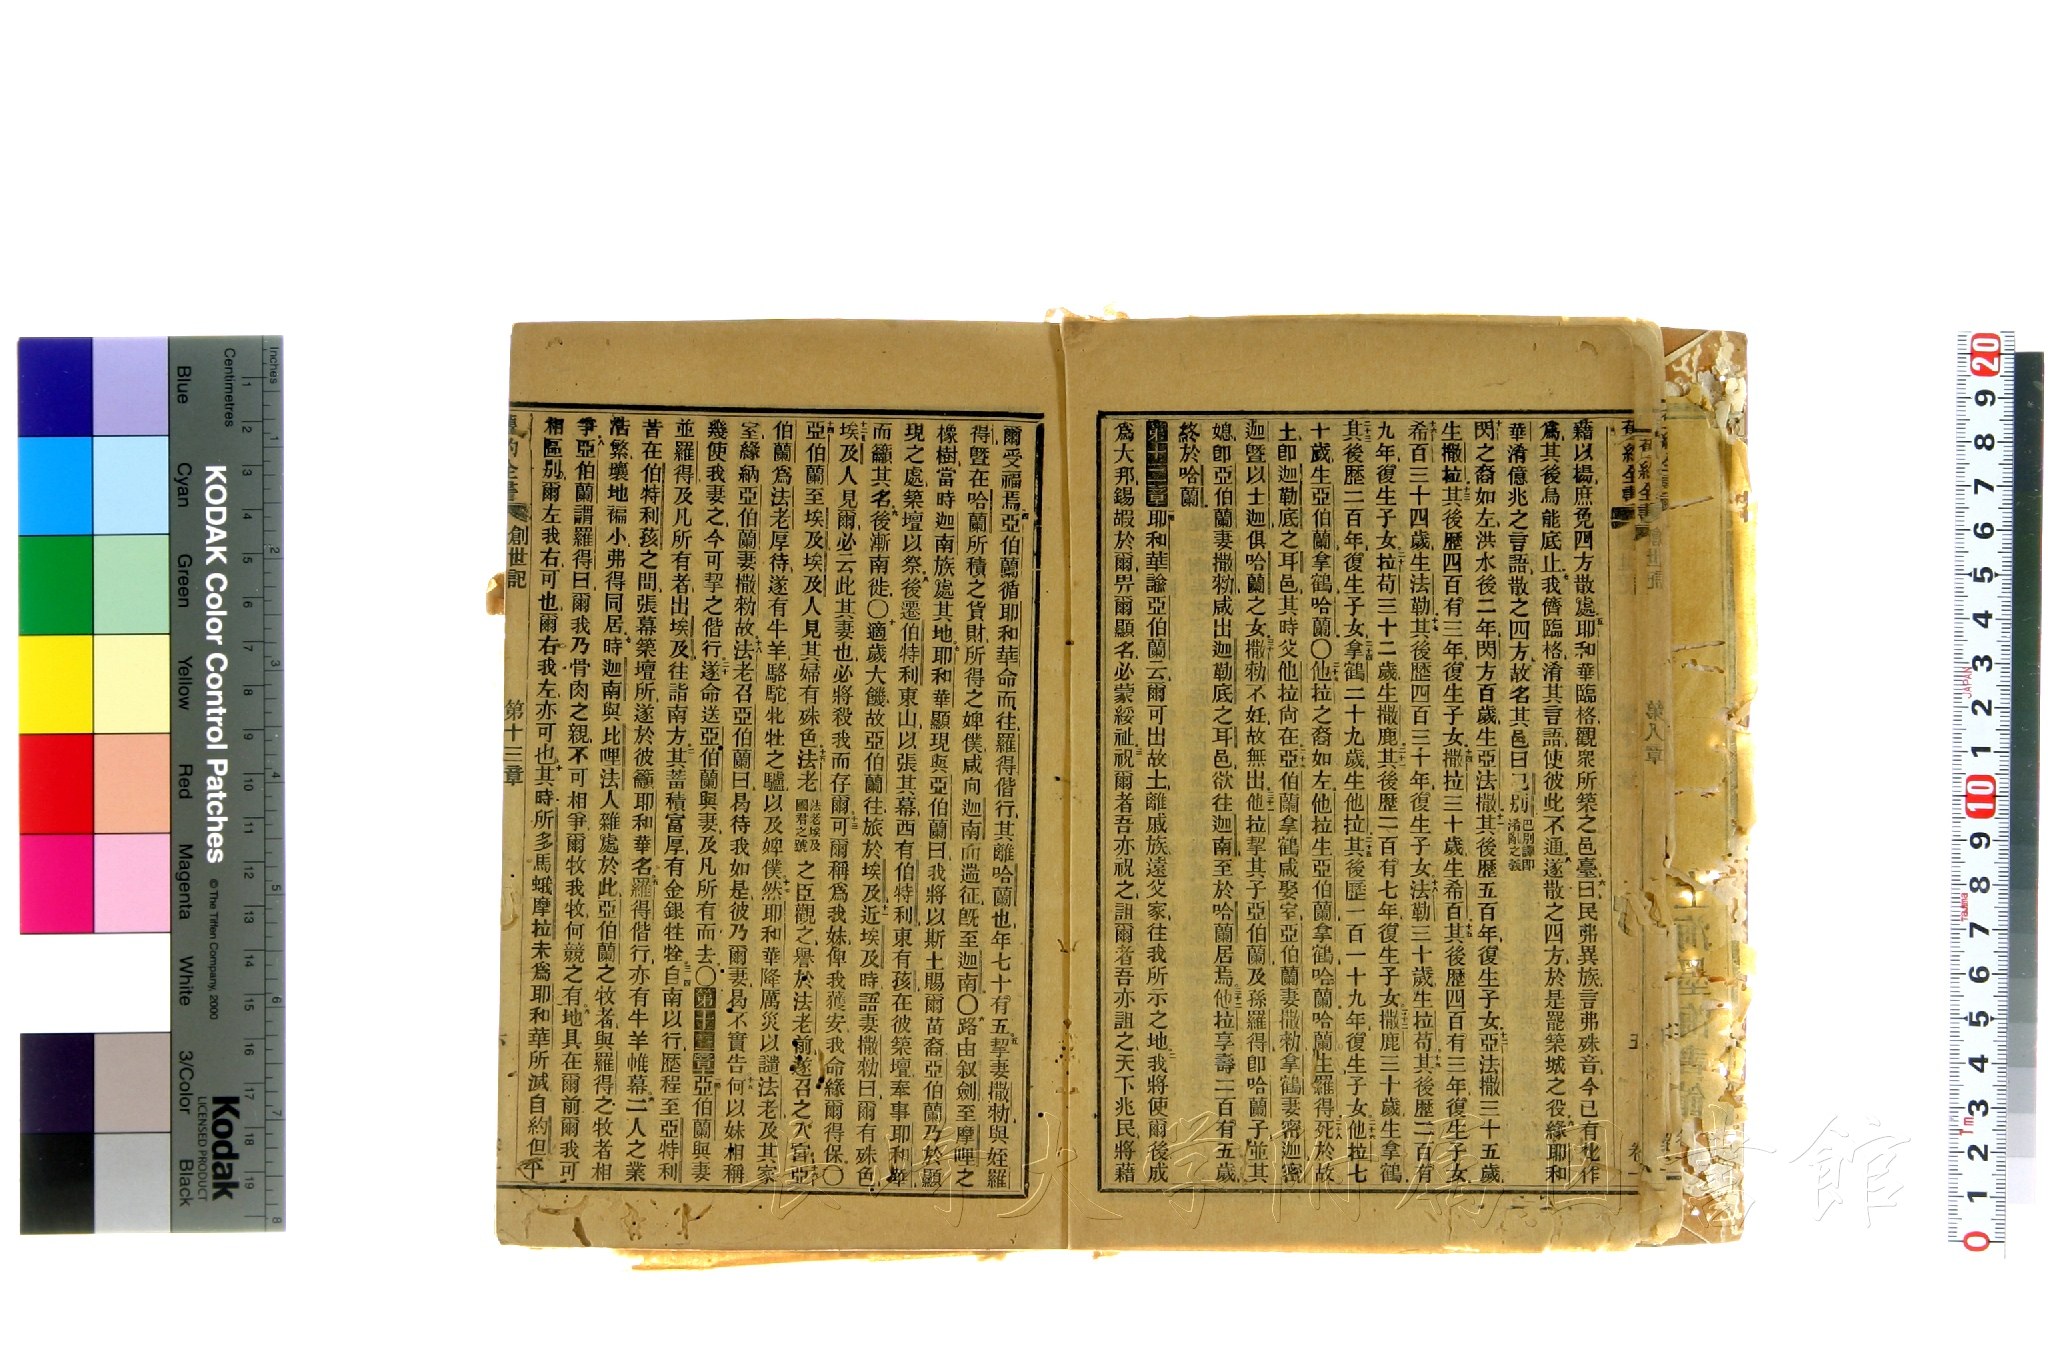 藉以揚庶免四方散處耶和華臨格觀衆所築之邑臺曰民弗異族言弗殊音今已有此作
爲其後烏能底止我儕臨格淆其言語使彼此不通遂散之四方於是罷築城之役緣耶和
華淆億兆之言語散之四方故名其邑曰巴別巴別譯卽淆亂之義
閃之裔如左洪水後二年閃方百歲生亞法撒其後歷五百年復生子女亞法撒三十五歲
生撒拉其後歷四百有三年復生子女撒拉三十歲生希百其後歷四百有三年復生子女
希百三十四歲生法勒其後歷四百三十年復生子女法勒三十歲生拉苟其後歷二百有
九年復生子女拉苟三十二歲生撒鹿其後歷二百有七年復生子女撒鹿三十歲生拿鶴
其後歷二百年復生子女拿鶴二十九歲生他拉其後歷一百一十九年復生子女他拉七
十歲生亞伯蘭拿鶴哈蘭〇他拉之裔如左他拉生亞伯蘭拿鶴哈蘭哈蘭生羅得死於故
土卽迦勒底之耳邑其時父他拉尚在亞伯蘭拿鶴咸娶室亞伯蘭妻撒勑拿鶴妻密迦密
迦曁以士迦俱哈蘭之女撒勑不妊故無出他拉挈其子亞伯蘭及孫羅得卽哈蘭子並其
媳卽亞伯蘭妻撒勑咸出迦勒底之耳邑欲往迦南至於哈蘭居焉他拉享壽二百有五歲
終於哈蘭
第十二章耶和華諭亞伯蘭云爾可出故土離戚族遠父家往我所示之地我將使爾後成
爲大邦錫嘏於爾畀爾顯名必蒙綏祉祝爾者吾亦祝之詛爾者吾亦詛之天下兆民將藉
爾受福焉亞伯蘭循耶和華命而往羅得偕行其離哈蘭也年七十有五挈妻撒勑與姪羅
得曁在哈蘭所積之貨財所得之婢僕咸向迦南而遄征旣至迦南〇路由叙劍至摩哩之
橡樹當時迦南族處其地耶和華顯現與亞伯蘭曰我將以斯土賜爾苗裔亞伯蘭乃於顯
現之處築壇以祭後遷伯特利東山以張其幕西有伯特利東有孩在彼築壇奉事耶和華
而籲其名後漸南徙〇適歲大饑故亞伯蘭往旅於埃及近埃及時語妻撒勑曰爾有殊色
埃及人見爾必云此其妻也必將殺我而存爾可爾稱爲我妹俾我獲安我命緣爾得保〇
亞伯蘭至埃及埃及人見其婦有殊色法老法老埃及國君之號之臣觀之譽於法老前遂召之入宮亞
伯蘭爲法老厚待遂有牛羊駱駝牝牡之驢以及婢僕然耶和華降厲災以譴法老及其家
室緣納亞伯蘭妻撒勑故法老召亞伯蘭曰曷待我如是彼乃爾妻曷不實告何以妹相稱
幾使我妻之今可挈之偕行遂命送亞伯蘭與妻及凡所有而去〇第十三章亞伯蘭與妻
並羅得及凡所有者出埃及往詣南方其蓄積富厚有金銀牲牷自南以行歷程至亞特利
昔在伯特利孩之間張幕築壇所遂於彼籲耶和華名羅得偕行亦有牛羊帷幕二人之業
浩繁壤地褊小弗得同居時迦南與比哩法人雜處於此亞伯蘭之牧者與羅得之牧者相
爭亞伯蘭謂羅得曰爾我乃骨肉之親不可相爭爾牧我牧何競之有地具在爾前爾我可
相區別爾左我右可也爾右我左亦可也其時所多馬蛾摩拉未爲耶和華所滅自約但平
創世記
第十三章
第八章
KODAK Color Control Patches
© The Tiffen Company, 2000
Kodak
LICENSED PRODUCT
Inches
Centimetres
Blue
Cyan
Green
Yellow
Red
Magenta
White
3/Color
Black
長崎大学附属図書館